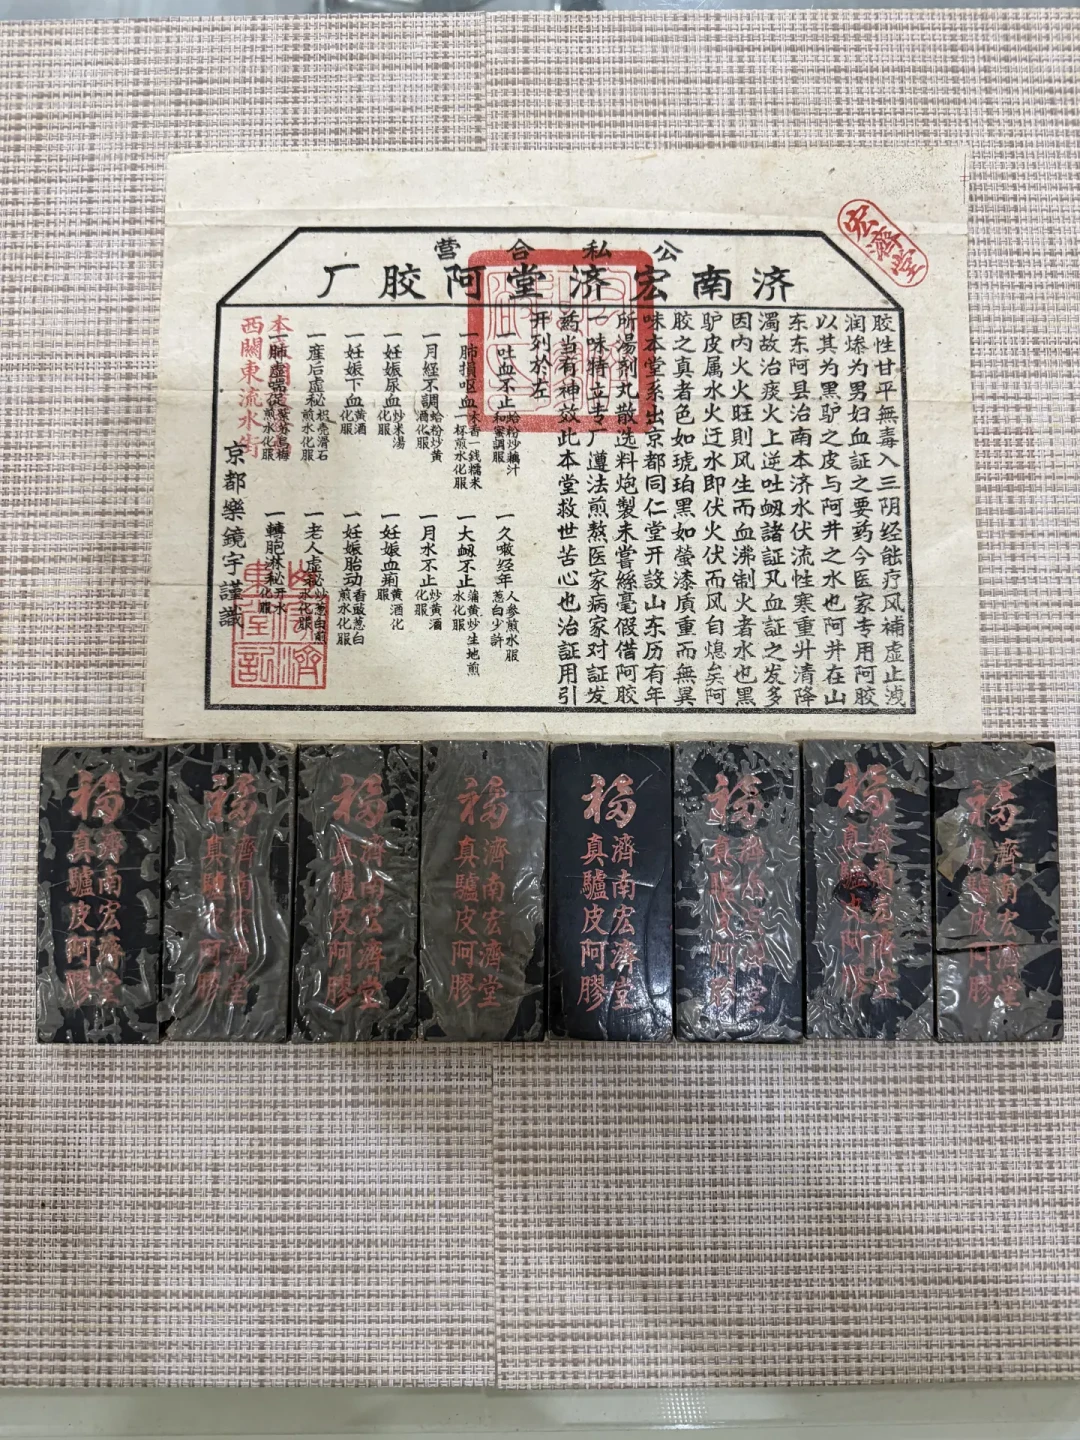 宏濟堂
公私合营
济南宏济堂阿胶厂
胶性甘平無毒入三阴经能疗风補虚止浅
润燥为男妇血証之要药今医家专用阿胶
以其为黑驴之皮与阿井之水也阿井在山
东东阿县治南本济水伏流性寒重升清降
濁故治痰火上逆吐衂諸証及血証之发多
因内火火旺則风生而血沸制火者水也黑
驴皮属水火迂水即伏火伏而风自熄矣阿
胶之真者色如琥珀黑如莹漆质重而無異
味本堂系出京都同仁堂开設山东历有年
所湯剂丸散选料炮製未嘗絲毫假借阿胶
一味特立专厂遵法煎熬医家病家对証发
药当有神效此本堂救世苦心也治証用引
开列於左
一吐血不止蛤粉炒藕汁和蜜調服
一久嗽经年人参煎水服葱白少許
一肺損呕血木香一錢糯米一杯煎水化服
一大衂不止蒲黄炒生地煎水化服
一月經不調蛤粉炒黄酒化服
一月水不止炒黄酒化服
一妊娠尿血炒米湯化服
一妊娠血痢黄酒化服
一妊娠下血黄酒化服
一妊娠胎动香豉葱白煎水化服
一產后虚秘枳壳滑石煎水化服
一老人虚秘炒葱白煎水化服
一肺虚喘促紫苏烏梅煎水化服
一轉胞淋秘开水化服
西關東流水街
京都樂鏡宇謹識
福
濟南宏濟堂
真驢皮阿膠
福
濟南宏濟堂
真驢皮阿膠
福
濟南宏濟堂
真驢皮阿膠
福
濟南宏濟堂
真驢皮阿膠
福
濟南宏濟堂
真驢皮阿膠
福
濟南宏濟堂
真驢皮阿膠
福
濟南宏濟堂
真驢皮阿膠
福
濟南宏濟堂
真驢皮阿膠